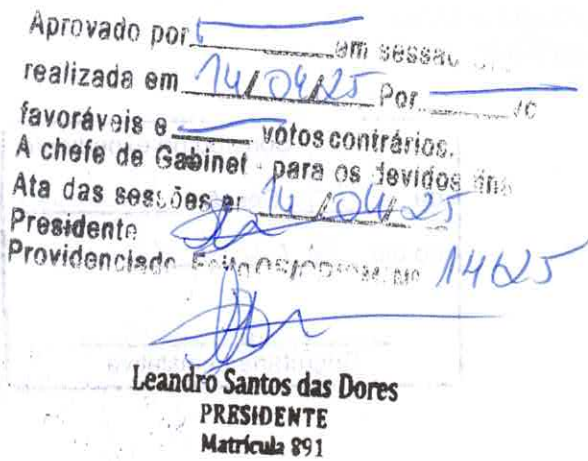 Aprovado por em sessão
realizada em 14/04/25 Por
favoráveis e votos contrários.
A chefe de Gabinet para os devidos fins
Ata das sessões em 14/04/25
Presidente
Providenciado Feito Nº 14625
Leandro Santos das Dores
PRESIDENTE
Matrícula 891